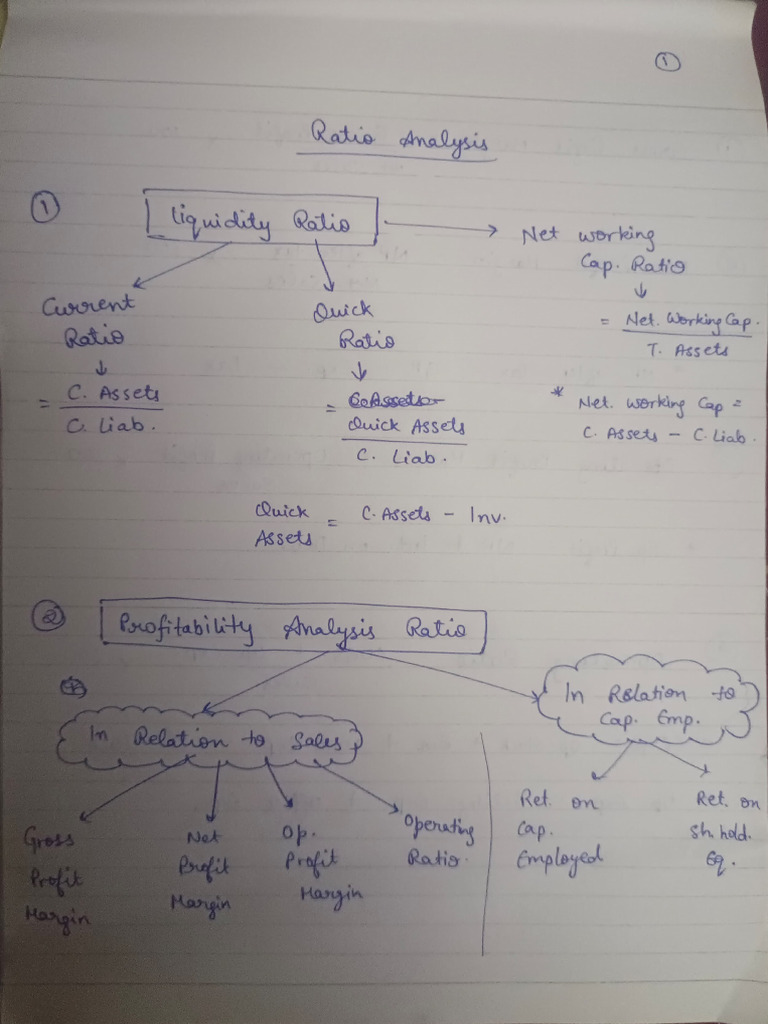 1
Ratio Analysis
1
Liquidity Ratio
Net working
Cap. Ratio
= Net. Working Cap.
T. Assets
* Net. Working Cap =
C. Assets - C. Liab.
Current
Ratio
= C. Assets
C. Liab.
Quick
Ratio
=
Quick Assets
C. Liab.
Quick
Assets
= C. Assets - Inv.
2
Profitability Analysis Ratio
In Relation to Sales
In Relation to
Cap. Emp.
Gross
Profit
Margin
Net
Profit
Margin
Op.
Profit
Margin
Operating
Ratio.
Ret. on
Cap.
Employed
Ret. on
Sh. hold.
Eq.